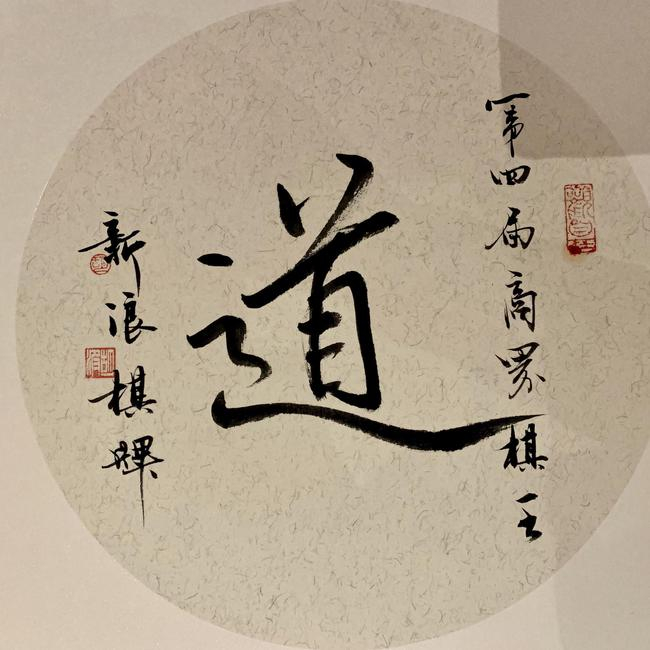 第四届商界棋王
道
新浪棋牌